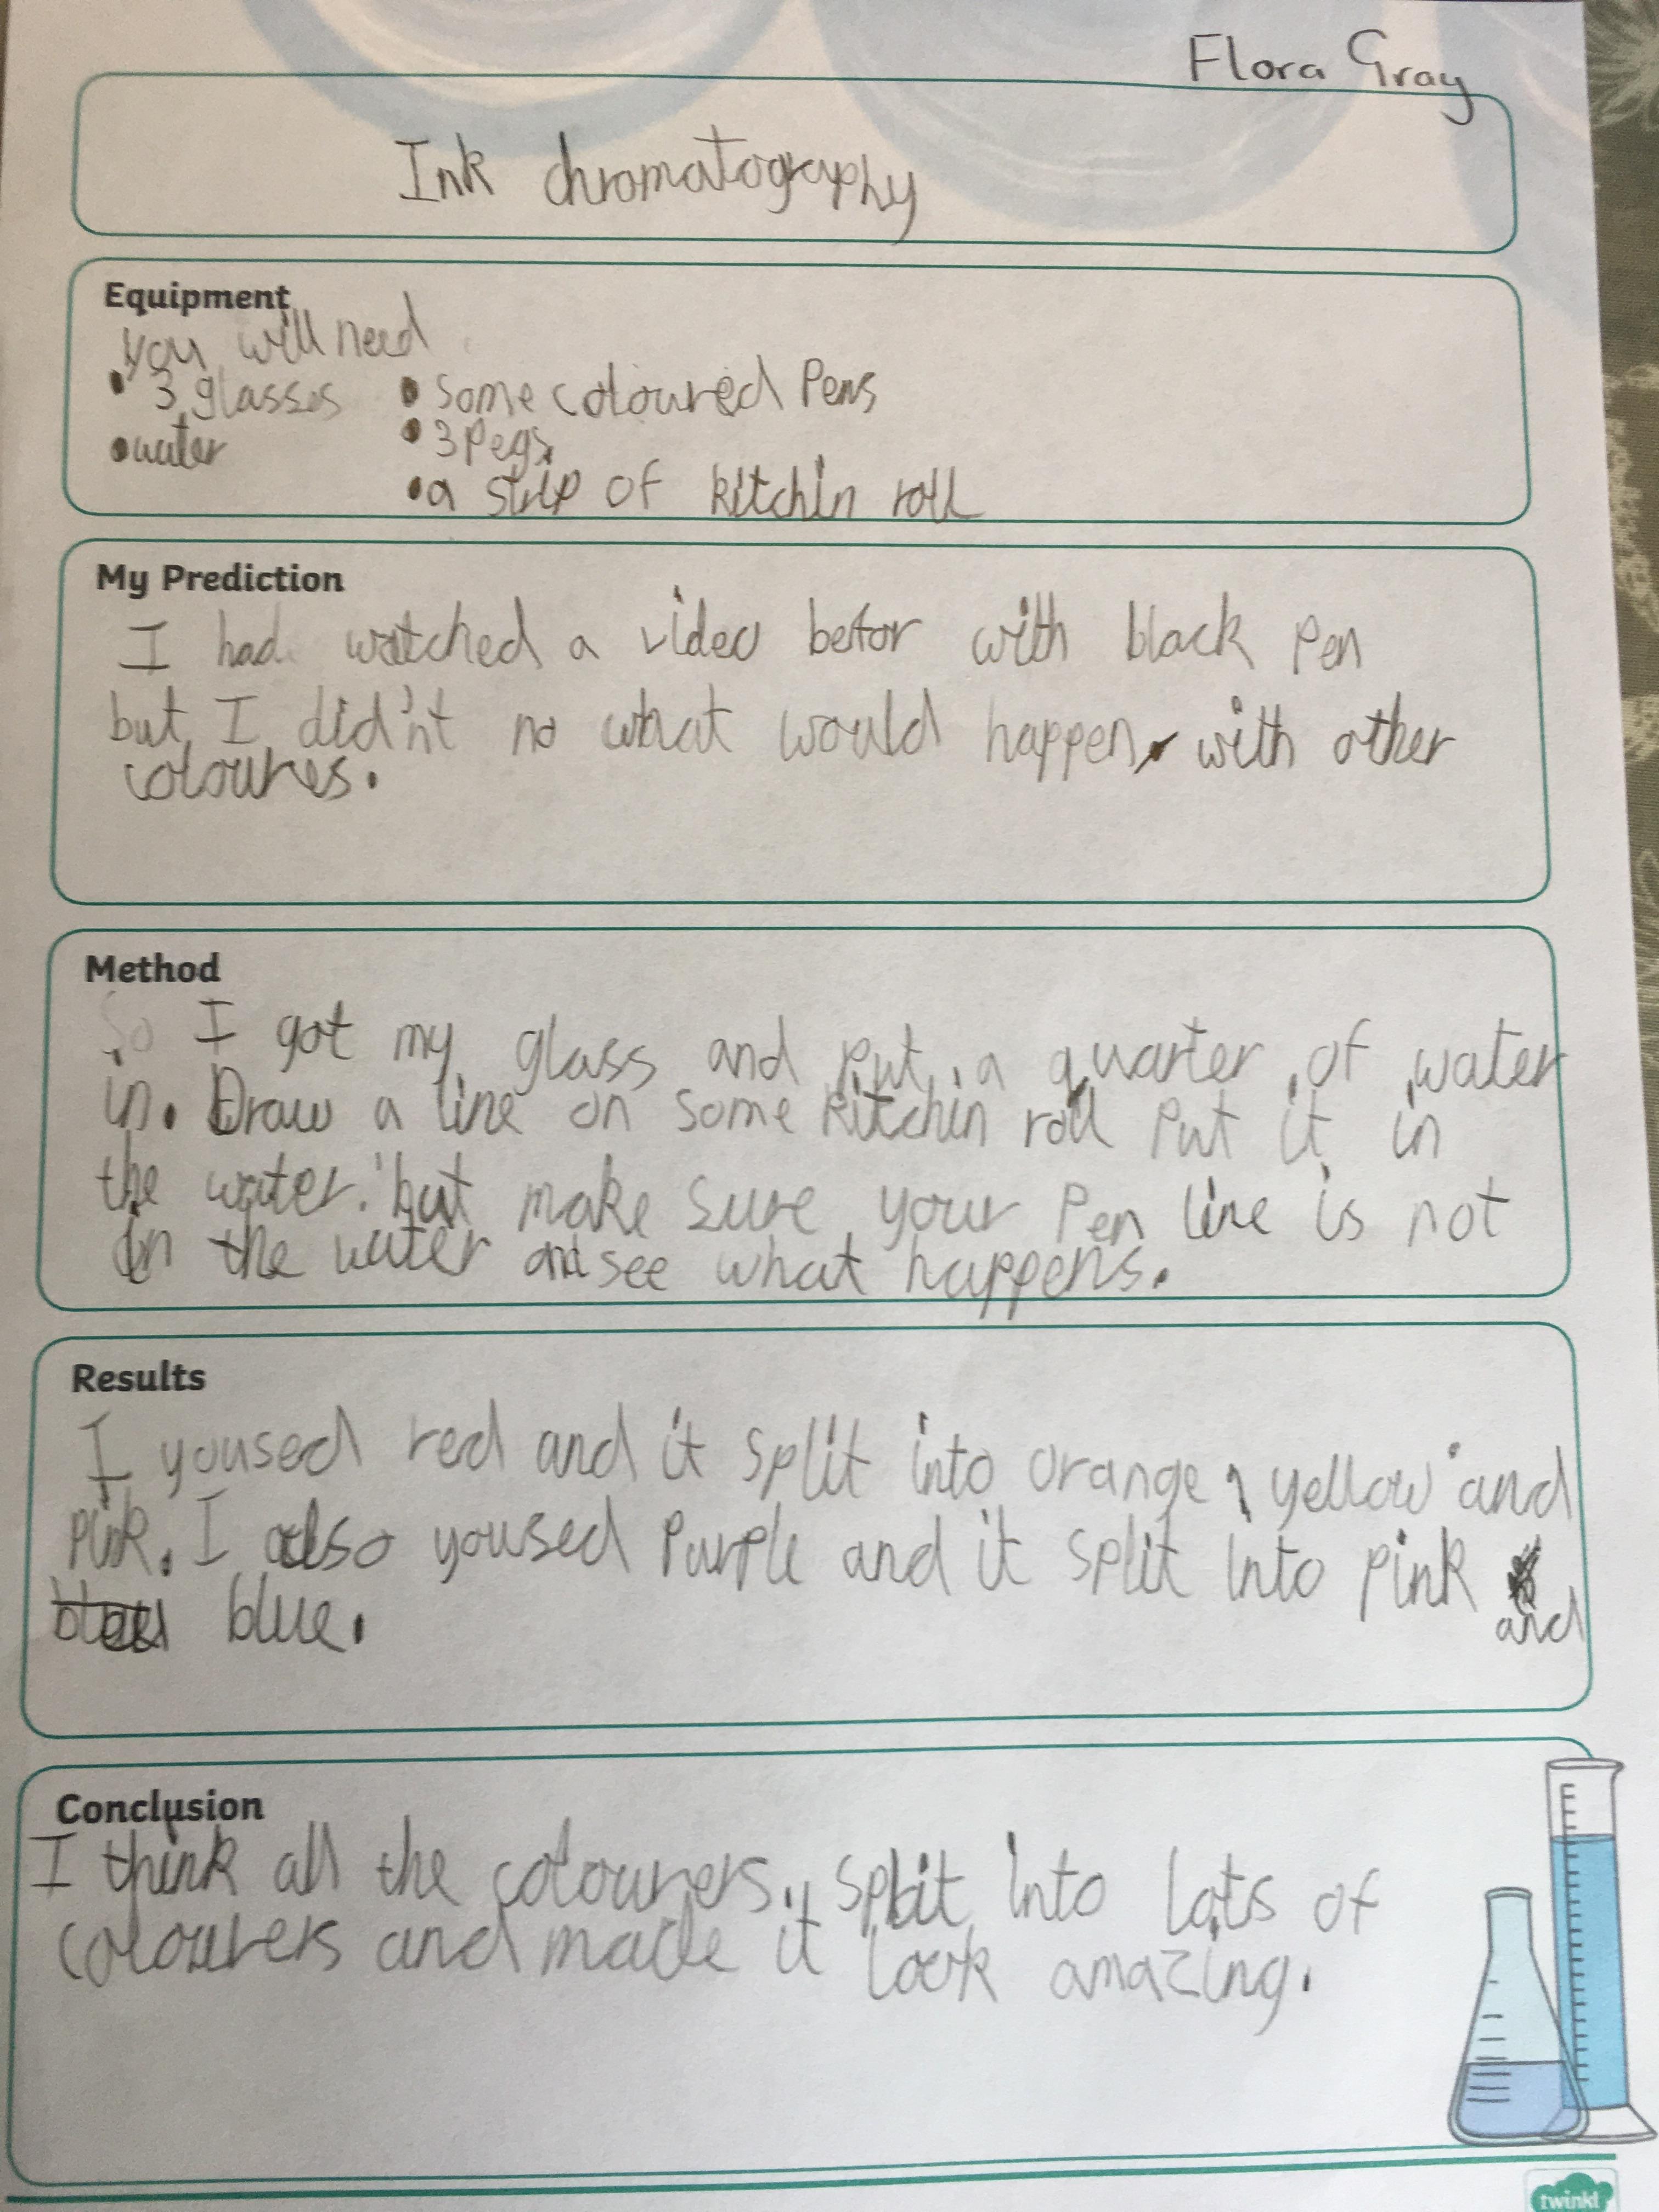 Flora Gray
Ink chromatography
Equipment
you will need
• 3 glasses • some coloured Pens
• water • 3 Pegs
• a strip of kitchin roll
My Prediction
I had watched a video befor with black Pen
but I didn't no what would happen with other
coloures.
Method
So I got my glass and put a quarter of water
in. Draw a line on some kitchin roll Put it in
the water. but make sure your Pen line is not
in the water and see what happens.
Results
I yoused red and it split into orange, yellow and
pink. I also yoused Purple and it split into pink
and
blue.
Conclusion
I think all the colourers split into lots of
colourers and made it look amazing.
twinkl